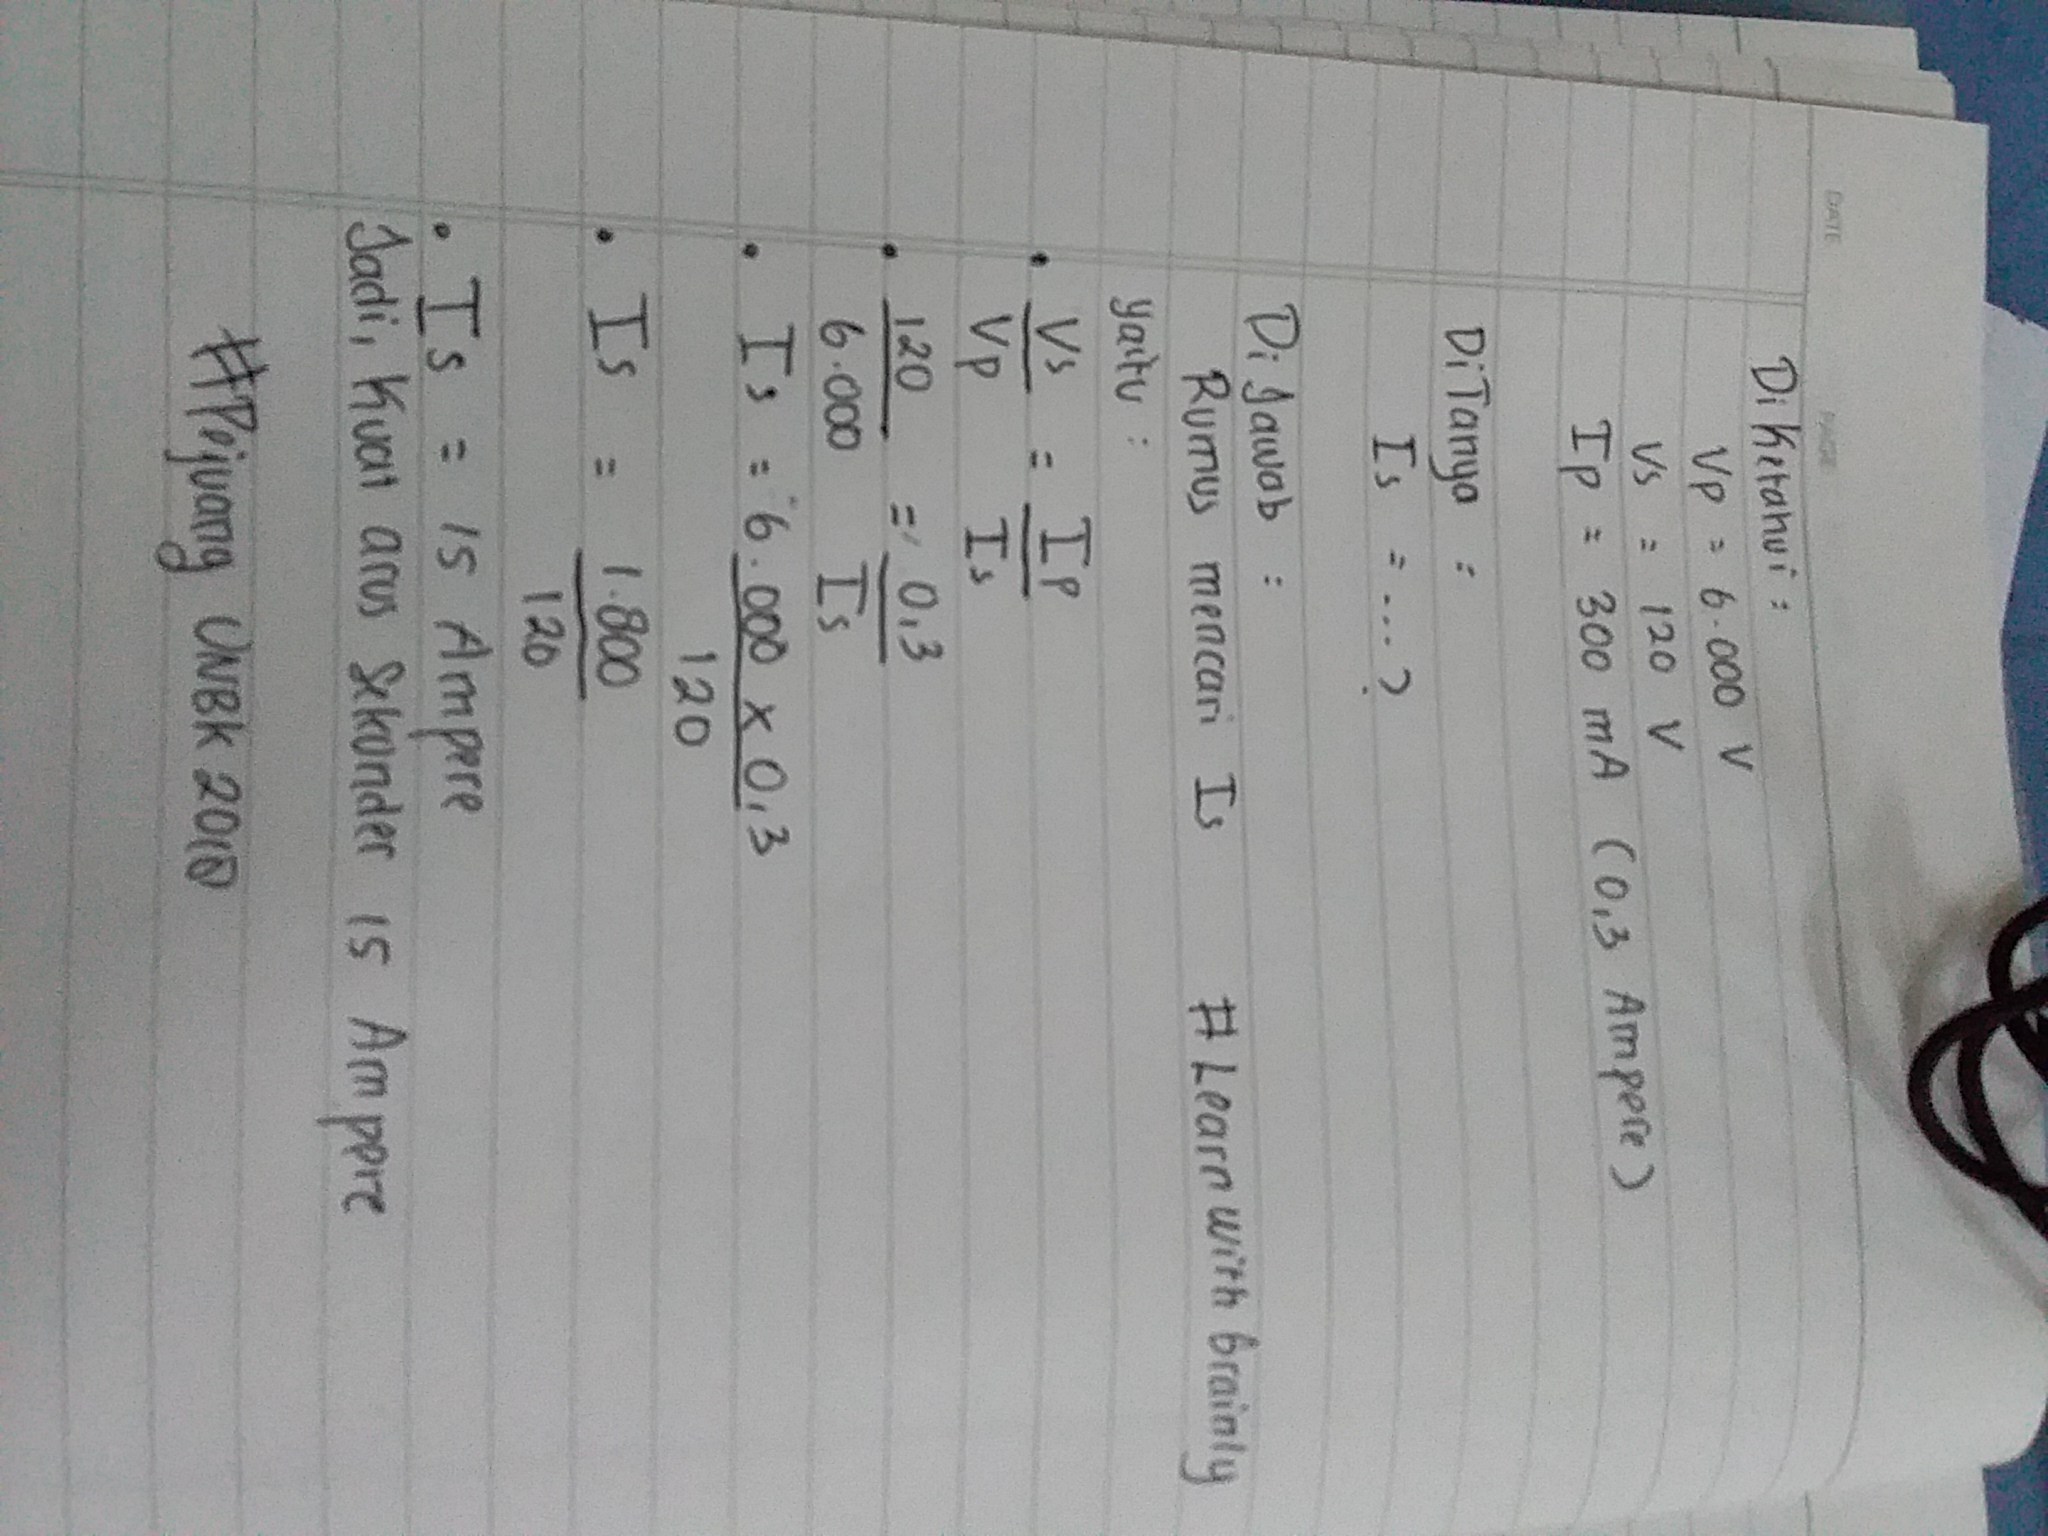 DATE
PAGE
Diketahui :
Vp = 6.000 V
Vs = 120 V
Ip = 300 mA (0,3 Ampere)
DiTanya :
Is = ....?
Dijawab :
Rumus mencari Is # Learn with brainly
yaitu :
• Vs = Ip
Vp Is
• 120 = 0,3
6.000 Is
• Is = 6.000 x 0,3
120
• Is = 1.800
120
• Is = 15 Ampere
Jadi, Kuat arus Sekunder 15 Ampere
#Pejuang UNBK